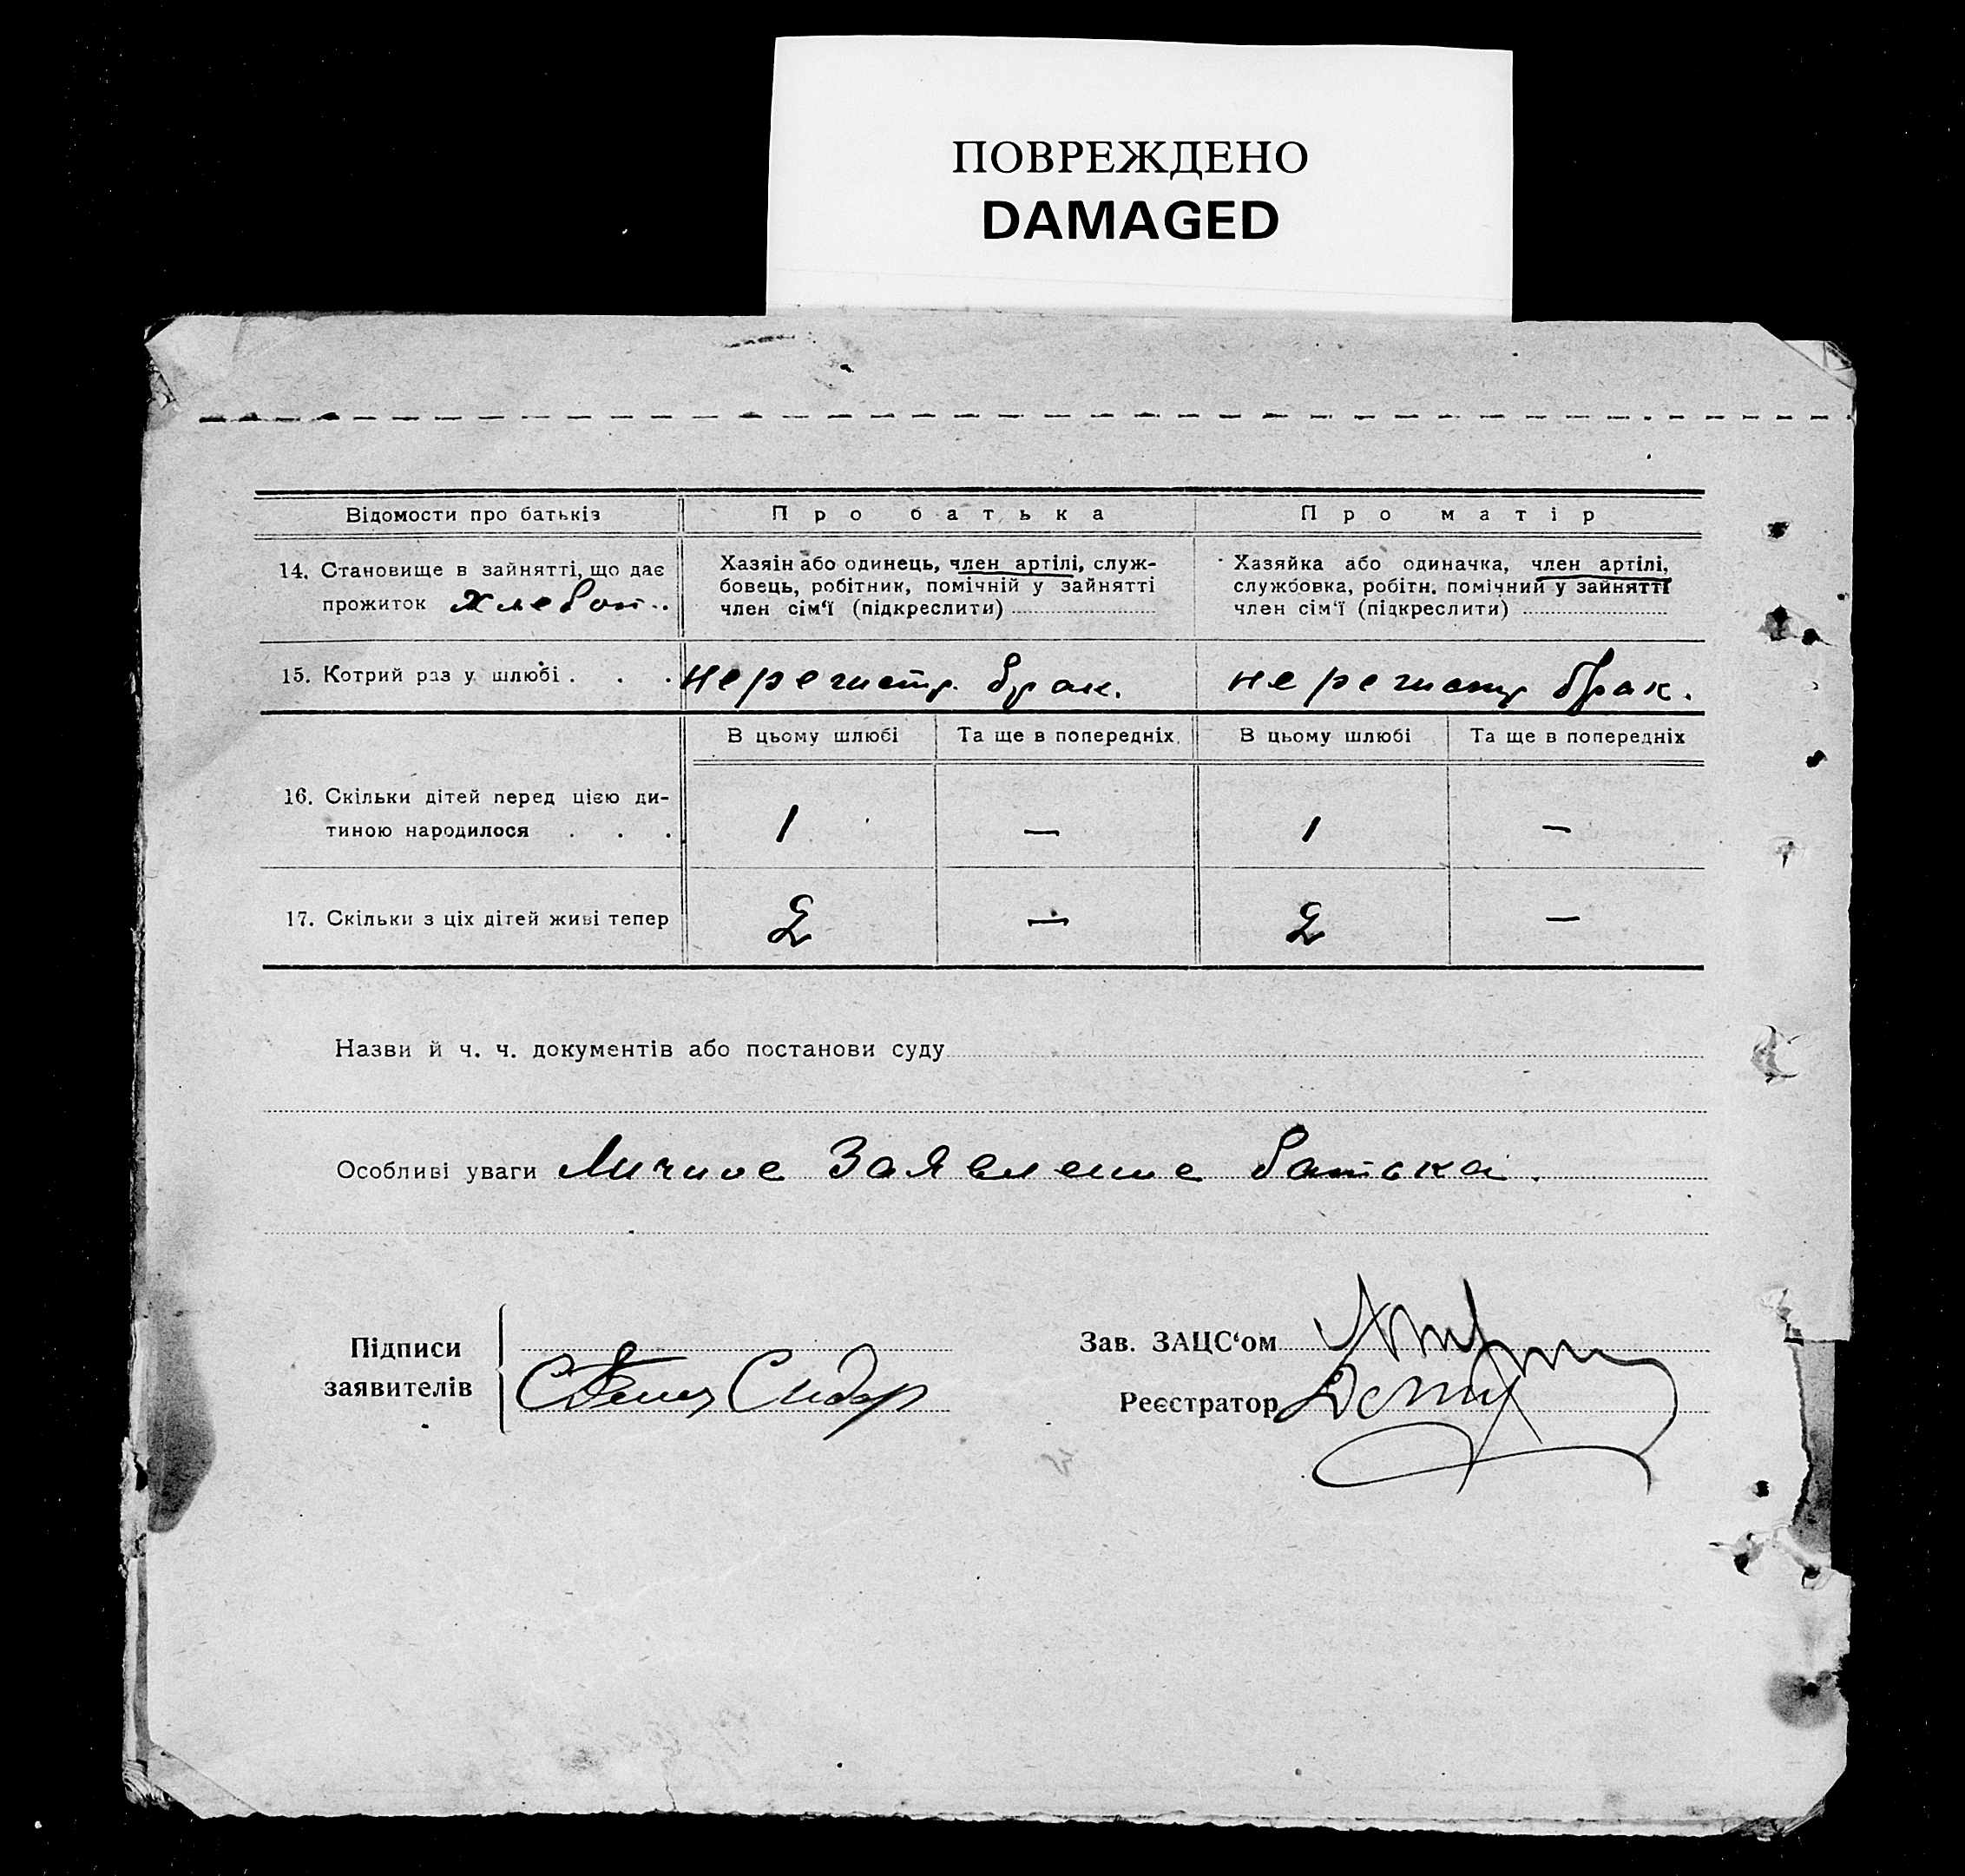 ПОВРЕЖДЕНО
DAMAGED
Відомости про батьків
Про батька
Про матір
14. Становище в зайнятті, що дає
прожиток хлебоп..
Хазяін або одинець, член артілі, служ-
бовець, робітник, помічній у зайнятті
член сім'ї (підкреслити)
Хазяйка або одиначка, член артілі,
службовка, робітн. помічний у зайнятті
член сім'ї (підкреслити)
15. Котрий раз у шлюбі . . .
нерегистр. брак.
не регистр брак.
В цьому шлюбі
Та ще в попередніх
В цьому шлюбі
Та ще в попередніх
16. Скільки дітей перед цією ди-
тиною народилося . . .
1
—
1
—
17. Скільки з ціх дітей живі тепер
2
—
2
—
Назви й ч. ч. документів або постанови суду
Особливі уваги Личное Заявление батька.
Підписи
заявителів
Зав. ЗАЦС‘ом
Реєстратор